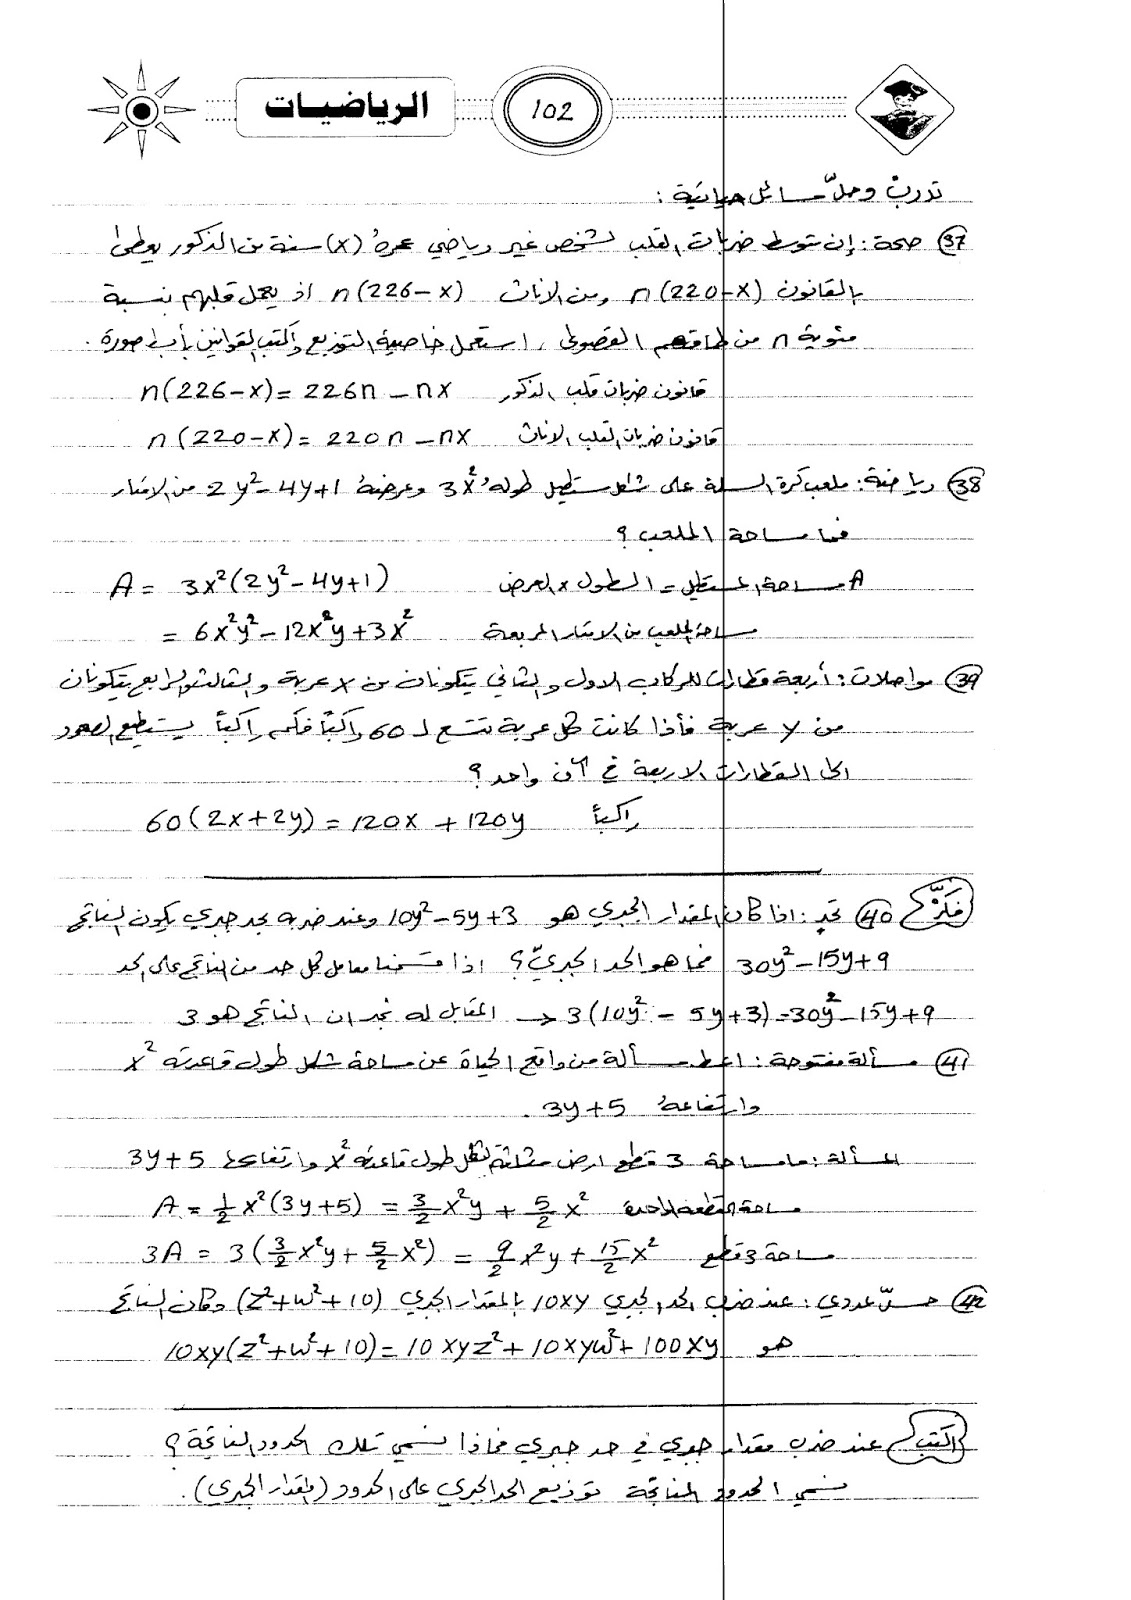 الرياضيات
102
تدرب وحلّ مسائل حياتية :
37 صحة : إن متوسط ضربات القلب لشخص غير رياضي عمره (x) سنة من الذكور يعطى
بالقانون n(220-x) ومن الاناث n(226-x) اذ يعمل قلبهم بنسبة
مئوية n من طاقتهم القصوى ، استعمل خاصية التوزيع واكتب القوانين بأبسط صورة .
قانون ضربات قلب الذكور n(226-x) = 226n - nx
قانون ضربات القلب الاناث n(220-x) = 220n - nx
38 رياضة : ملعب كرة السلة على شكل مستطيل طوله 3x² وعرضه 2y²-4y+1 من الامتار
فما مساحة الملعب ؟
A مساحة المستطيل = الطول x العرض A = 3x²(2y²-4y+1)
مساحة الملعب من الامتار المربعة = 6x²y²-12x²y+3x²
39 مواصلات : أربعة قطارات للركاب الاول والثاني يتكونان من x عربة والثالث والرابع يتكونان
من y عربة فأذا كانت كل عربة تتسع لـ 60 راكباً فكم راكباً يستطيع الصعود
الى القطارات الاربعة في آن واحد ؟
راكباً 60(2x+2y) = 120x + 120y
فكّر
40 تحدٍ : اذا كان المقدار الجبري هو 10y²-5y+3 وعند ضربه بحد جبري يكون الناتج
30y²-15y+9 فما هو الحد الجبري ؟ اذا قسمنا معامل كل حد من الناتج على الحد
المقابل له نجد ان الناتج هو 3 → 3(10y² - 5y+3) = 30y²-15y+9
41 مسألة مفتوحة : اعط مسألة من واقع الحياة عن مساحة شكل طول قاعدته x²
وارتفاعه 3y+5 .
المسألة : ما مساحة 3 قطع ارض مثلثة الشكل طول قاعدته x² وارتفاعها 3y+5
مساحة القطعة الواحدة A = 1/2 x²(3y+5) = 3/2 x²y + 5/2 x²
مساحة 3 قطع 3A = 3(3/2 x²y + 5/2 x²) = 9/2 x²y + 15/2 x²
42 حسّ عددي : عند ضرب الحد الجبري 10xy بالمقدار الجبري (z²+w²+10) وكان الناتج
هو 10xy(z²+w²+10) = 10xyz² + 10xyw² + 100xy
اكتب
عند ضرب مقدار جبري في حد جبري فماذا نسمي تلك الحدود الناتجة ؟
نسمي الحدود الناتجة توزيع الحد الجبري على الحدود (المقدار الجبري) .